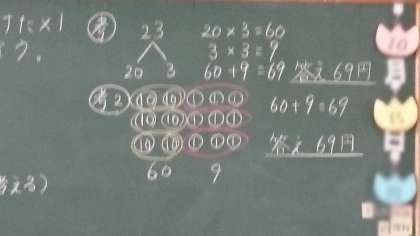 けた×1
考 23
20 3
20×3=60
3×3=9
60+9=69 答え 69円
考2 10 10 1 1 1
10 10 1 1 1
10 10 1 1 1
60 9
60+9=69
答え 69円
考える)
10
15